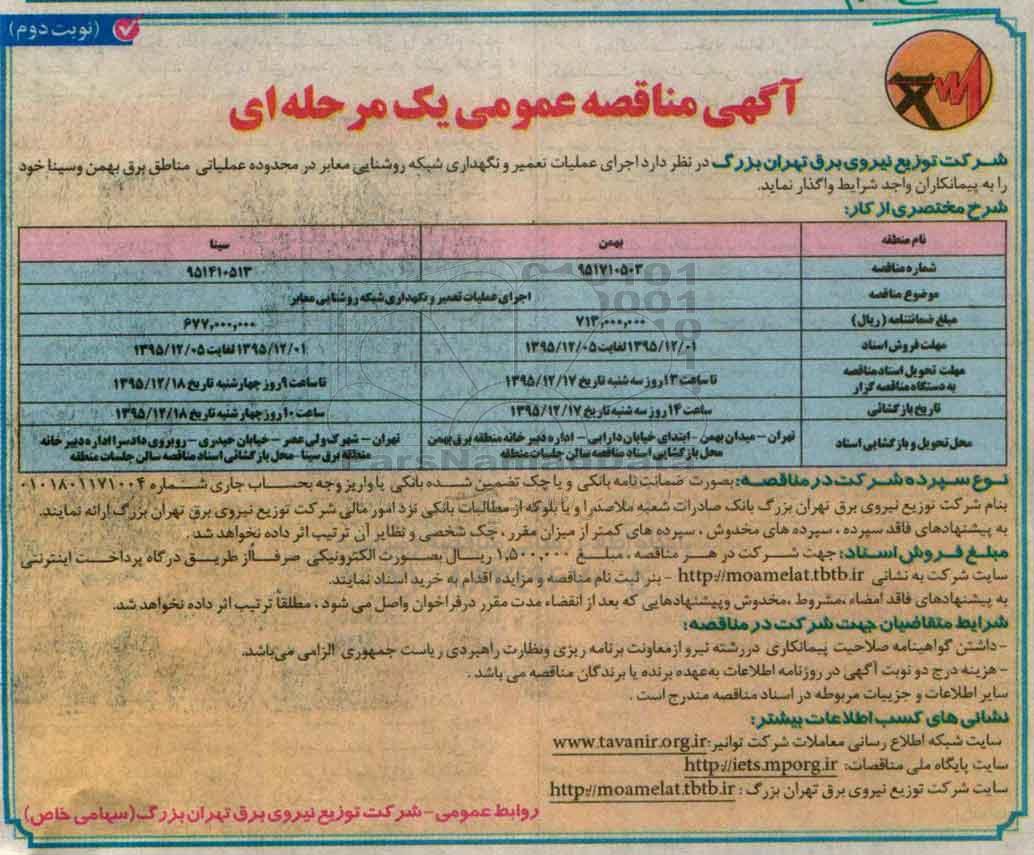 (نوبت دوم)
آگهی مناقصه عمومی یک مرحله ای
شرکت توزیع نیروی برق تهران بزرگ در نظر دارد اجرای عملیات تعمیر و نگهداری شبکه روشنایی معابر در محدوده عملیاتی مناطق برق بهمن وسینا خود
را به پیمانکاران واجد شرایط واگذار نماید.
شرح مختصری از کار:
نام منطقه بهمن سینا
شماره مناقصه ۹۵۱۷۱۰۵۰۳ ۹۵۱۴۱۰۵۱۳
موضوع مناقصه اجرای عملیات تعمیر و نگهداری شبکه روشنایی معابر
مبلغ ضمانتنامه (ریال) ۷۱۳,۰۰۰,۰۰۰ ۶۷۷,۰۰۰,۰۰۰
مهلت فروش اسناد ۱۳۹۵/۱۲/۰۱ لغایت ۱۳۹۵/۱۲/۰۵ ۱۳۹۵/۱۲/۰۱ لغایت ۱۳۹۵/۱۲/۰۵
مهلت تحویل اسناد مناقصه
به دستگاه مناقصه گزار تا ساعت ۱۳ روز سه شنبه تاریخ ۱۳۹۵/۱۲/۱۷ تا ساعت ۹ روز چهارشنبه تاریخ ۱۳۹۵/۱۲/۱۸
تاریخ بازگشائی ساعت ۱۴ روز سه شنبه تاریخ ۱۳۹۵/۱۲/۱۷ ساعت ۱۰ روز چهارشنبه تاریخ ۱۳۹۵/۱۲/۱۸
محل تحویل و بازگشایی اسناد تهران – میدان بهمن – ابتدای خیابان دارابی – اداره دبیر خانه منطقه برق بهمن
محل بازگشایی اسناد مناقصه سالن جلسات منطقه
تهران – شهرک ولی عصر – خیابان حیدری – روبروی دادسرا اداره دبیر خانه
منطقه برق سینا - محل بازگشائی اسناد مناقصه سالن جلسات منطقه
نوع سپرده شرکت در مناقصه: بصورت ضمانت نامه بانکی و یا چک تضمین شده بانکی یا واریز وجه بحساب جاری شماره ۰۱۰۱۸۰۱۱۷۱۰۰۴
بنام شرکت توزیع نیروی برق تهران بزرگ بانک صادرات شعبه ملاصدرا و یا بلوکه از مطالبات بانکی نزد امور مالی شرکت توزیع نیروی برق تهران بزرگ ارائه نمایند.
به پیشنهادهای فاقد سپرده ، سپرده های مخدوش ، سپرده های کمتر از میزان مقرر ، چک شخصی و نظایر آن ترتیب اثر داده نخواهد شد.
مبلغ فروش اسناد: جهت شرکت در هر مناقصه ، مبلغ ۱,۵۰۰,۰۰۰ ریال بصورت الکترونیکی صرفاً از طریق درگاه پرداخت اینترنتی
سایت شرکت به نشانی http://moamelat.tbtb.ir - بنر ثبت نام مناقصه و مزایده اقدام به خرید اسناد نمایند.
به پیشنهادهای فاقد امضاء ،مشروط ،مخدوش وپیشنهادهایی که بعد از انقضاء مدت مقرر درفراخوان واصل می شود ، مطلقاً ترتیب اثر داده نخواهد شد.
شرایط متقاضیان جهت شرکت در مناقصه:
-داشتن گواهینامه صلاحیت پیمانکاری دررشته نیرو ازمعاونت برنامه ریزی ونظارت راهبردی ریاست جمهوری الزامی می‌باشد.
-هزینه درج دو نوبت آگهی در روزنامه اطلاعات به‌عهده برنده یا برندگان مناقصه می باشد .
سایر اطلاعات و جزییات مربوطه در اسناد مناقصه مندرج است .
نشانی های کسب اطلاعات بیشتر:
سایت شبکه اطلاع رسانی معاملات شرکت توانیر:www.tavanir.org.ir
سایت پایگاه ملی مناقصات: http://iets.mporg.ir
سایت شرکت توزیع نیروی برق تهران بزرگ : http://moamelat.tbtb.ir
روابط عمومی – شرکت توزیع نیروی برق تهران بزرگ (سهامی خاص)